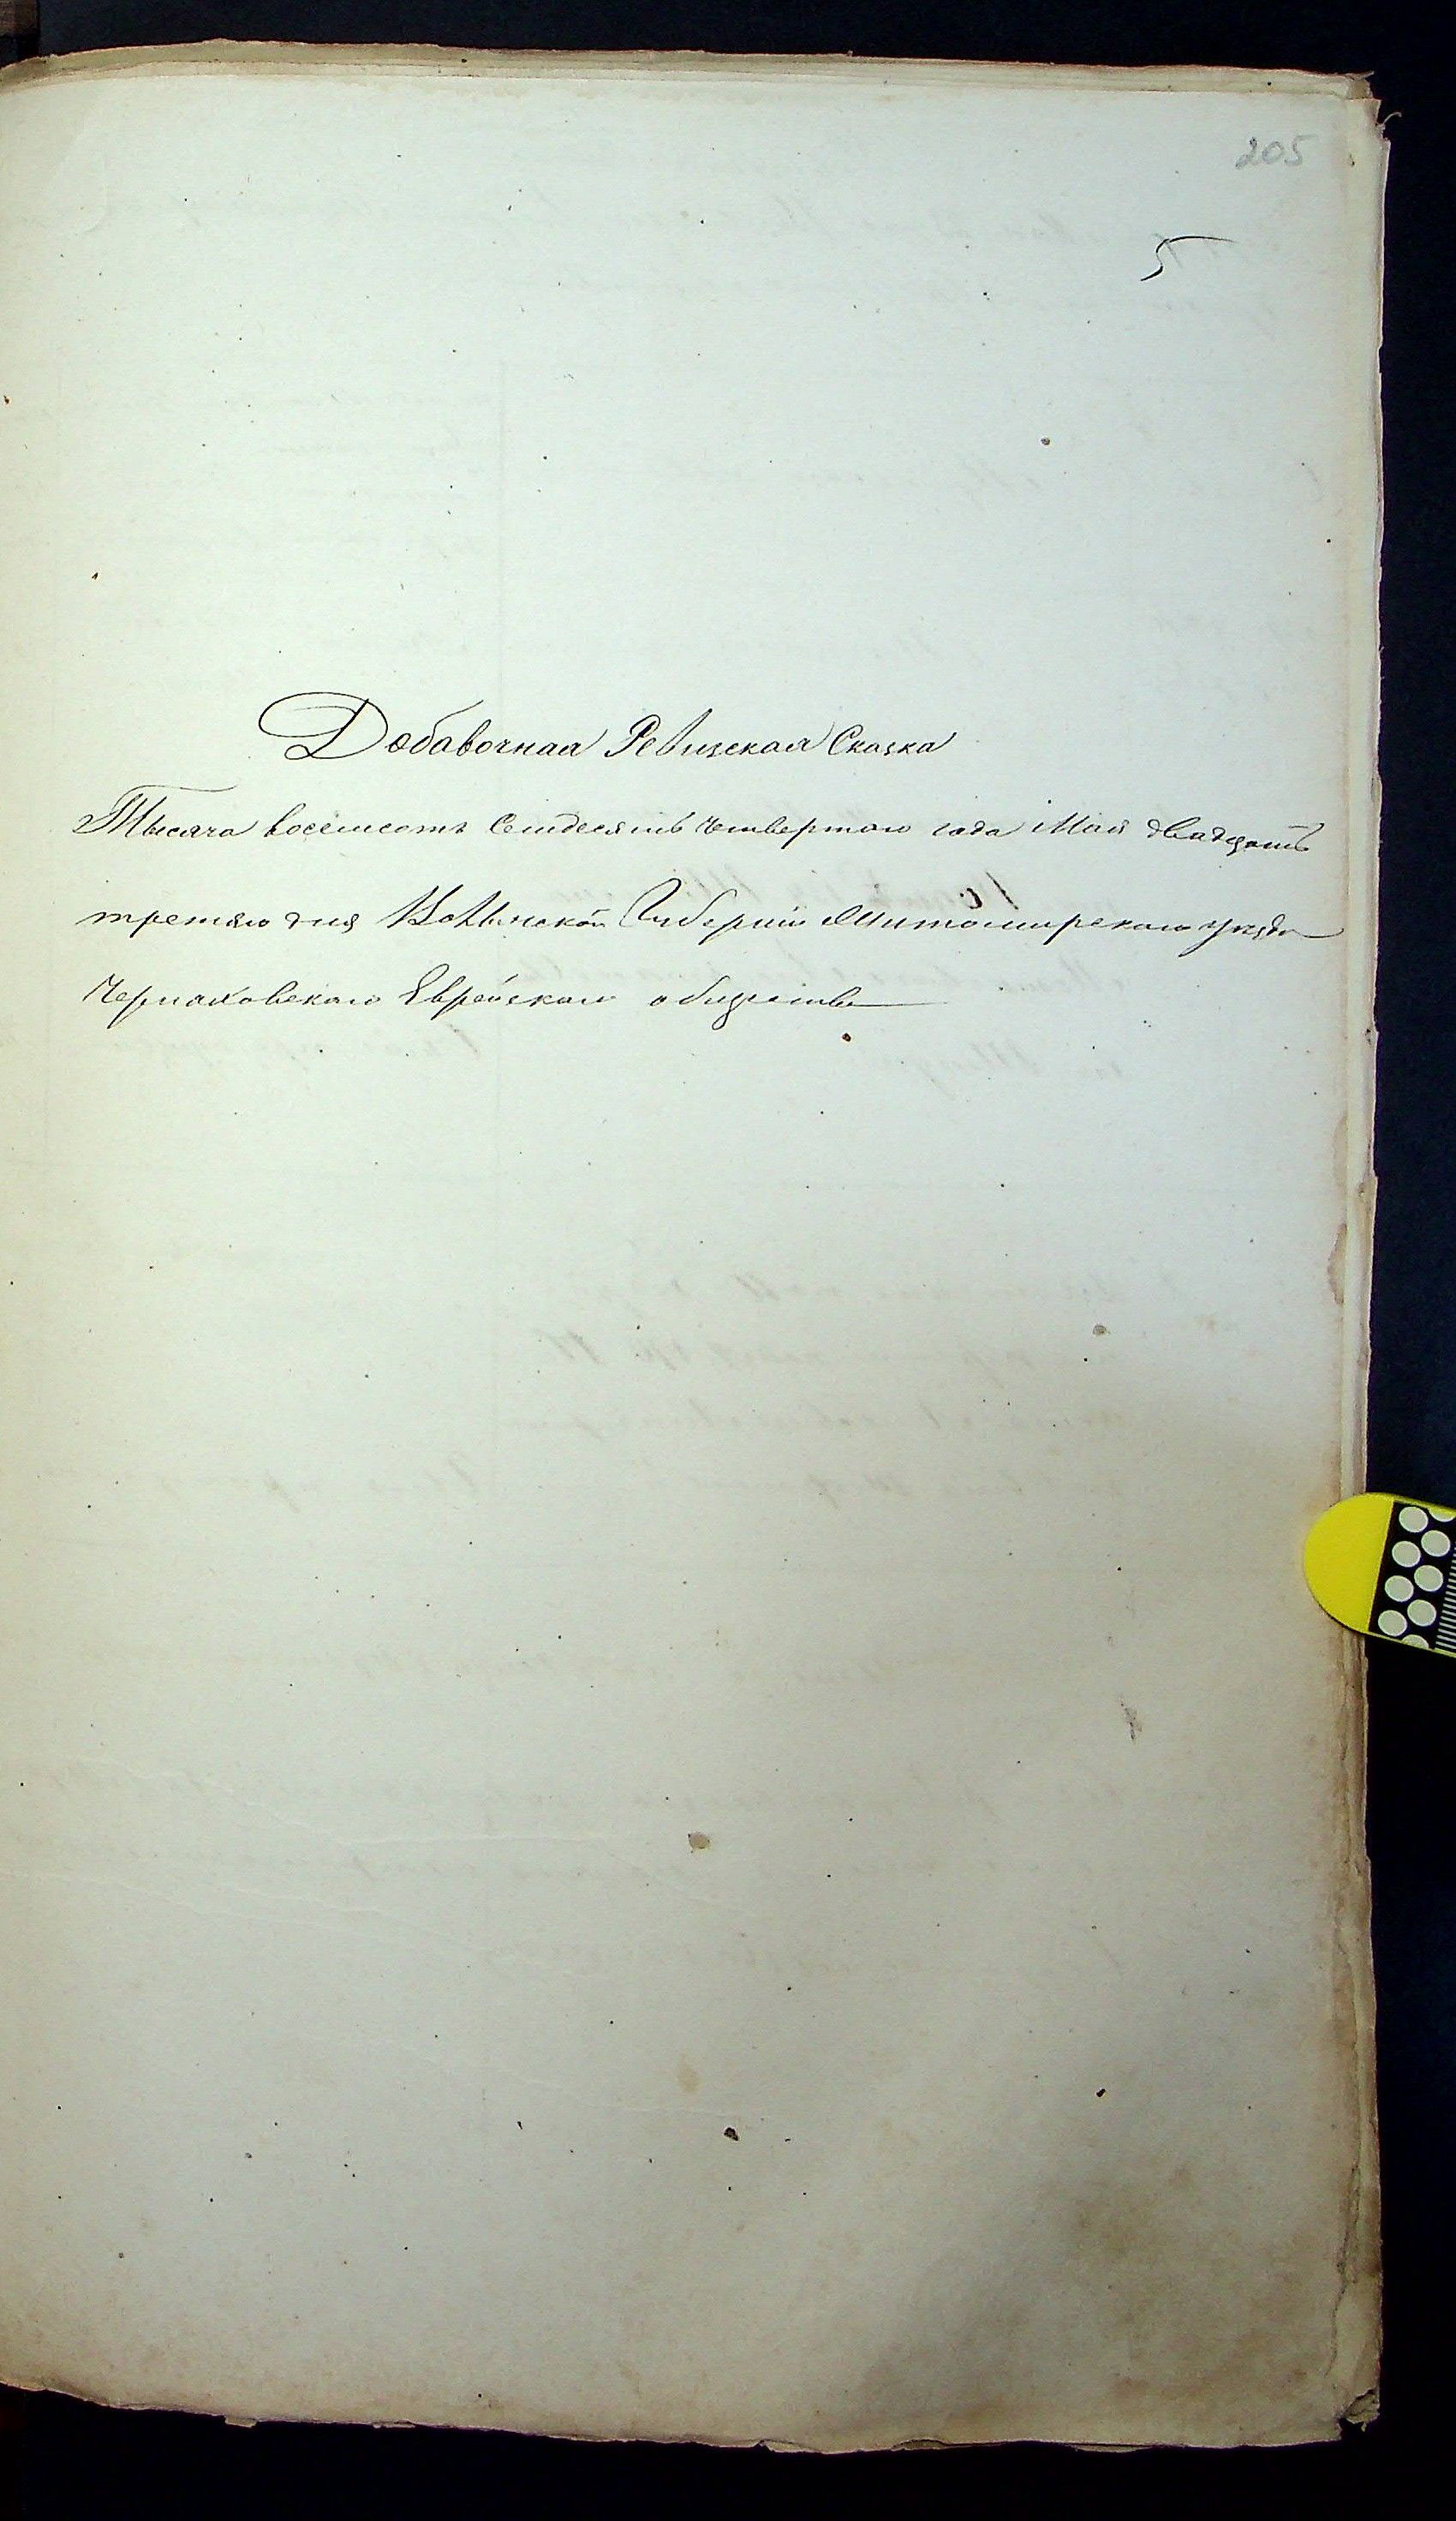 205
5
Добавочная Ревизская Сказка
Тысяча восемсотъ семдесятъ четвертаго года Мая двадцать
третяго дня Волынской Губерніи Житомирскаго уезда
Черняховскаго Еврейскаго общества